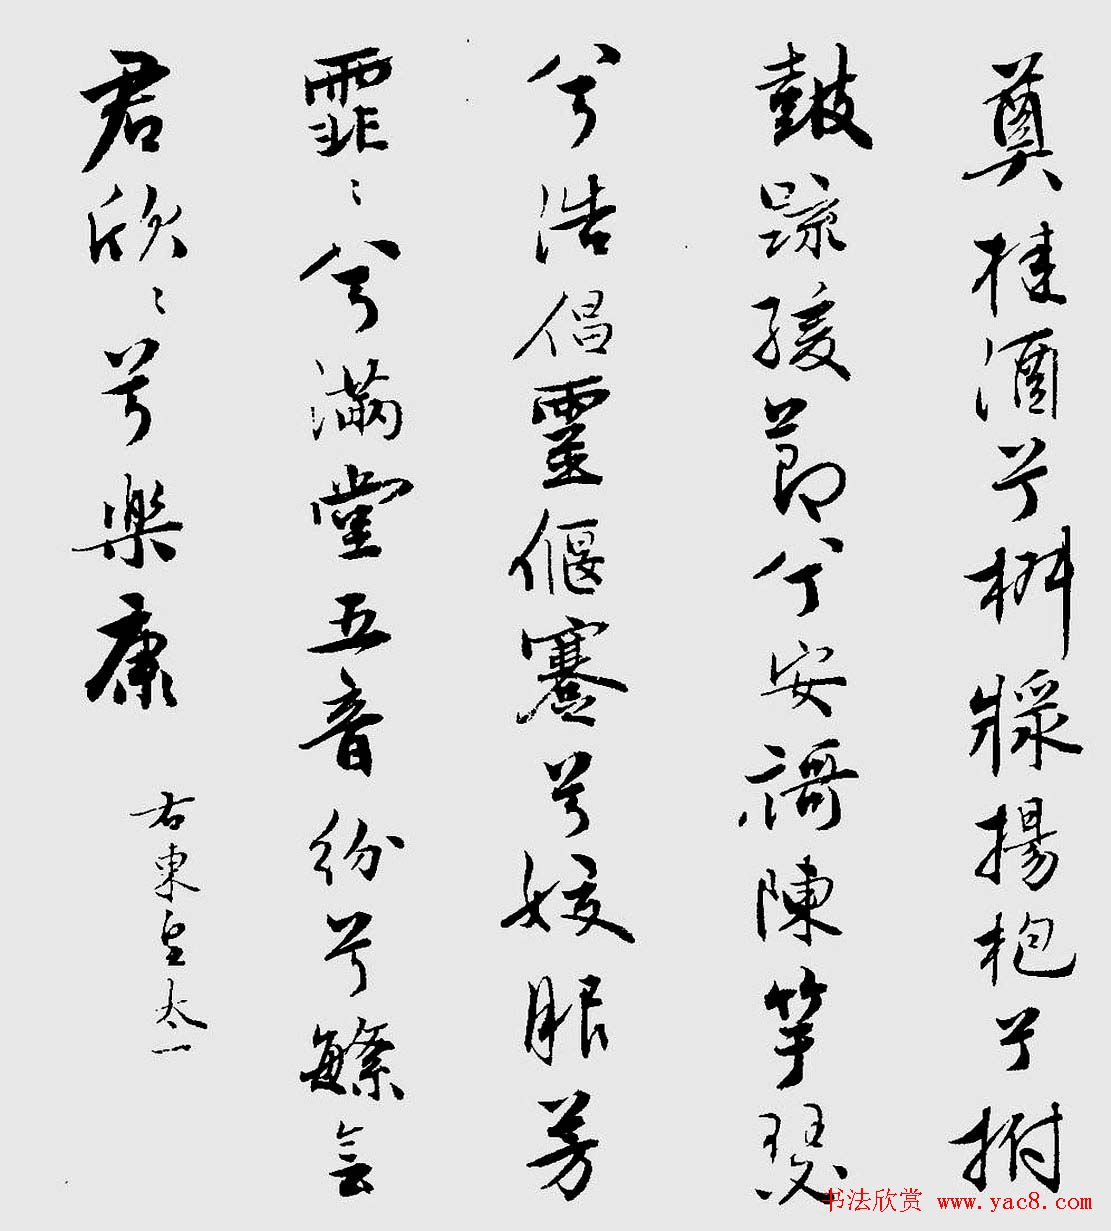 奠桂酒兮椒漿揚枹兮拊
鼓疏緩節兮安謌陳竽瑟
兮浩倡靈偃蹇兮姣服芳
霏〻兮滿堂五音紛兮繁會
君欣〻兮樂康
右東皇太一
书法欣赏 www.yac8.com